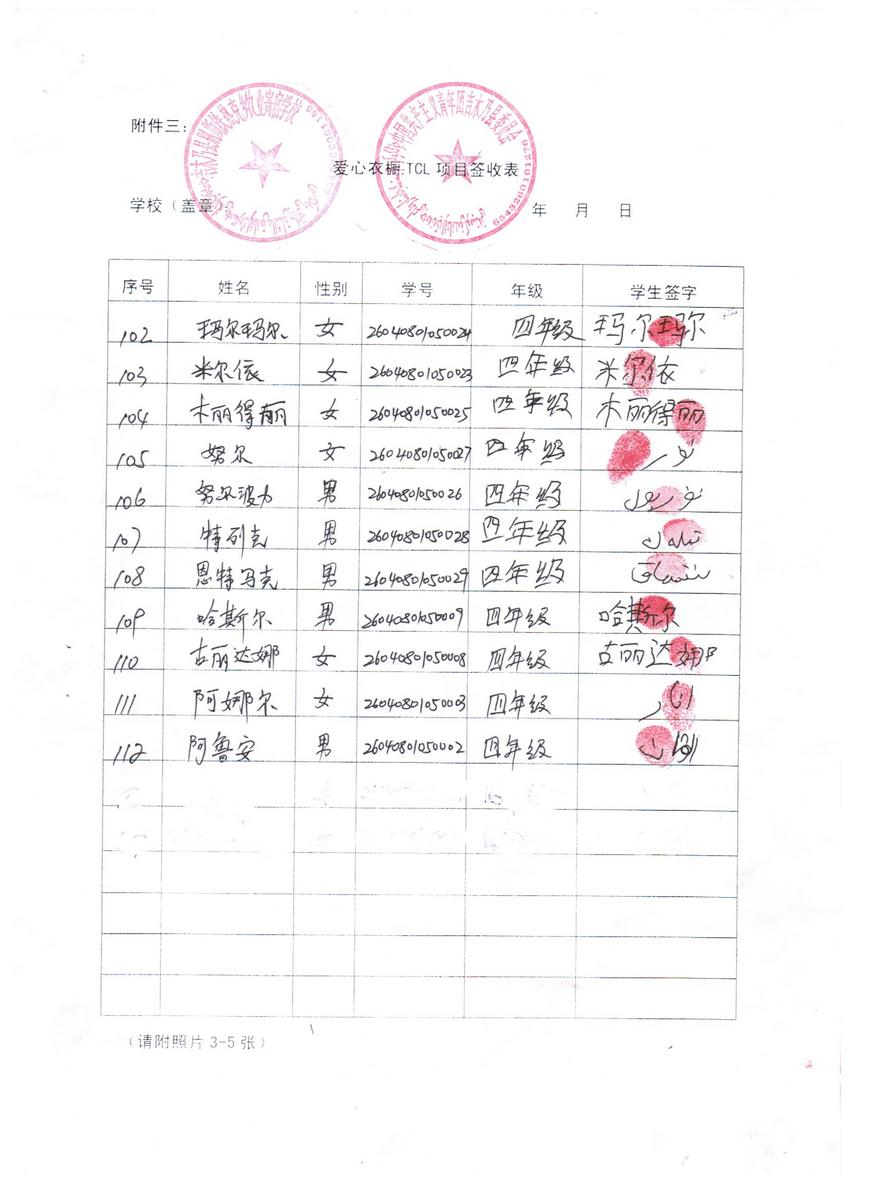 附件三:
爱心衣橱 TCL 项目签收表
学校（盖章）: 年 月 日
中国共产主义青年团吉木乃县委员会
6543260101276
序号 姓名 性别 学号 年级 学生签字
102 玛尔玛尔 女 26040801050024 四年级 玛尔玛尔
103 米尔依 女 26040801050023 四年级 米尔依
104 木丽得丽 女 26040801050025 四年级 木丽得丽
105 努尔 女 26040801050027 四年级 نۇر
106 努尔波力 男 26040801050026 四年级
107 特列克 男 26040801050028 四年级
108 恩特马克 男 26040801050029 四年级
109 哈斯尔 男 26040801050009 四年级 哈斯尔
110 古丽达娜 女 26040801050008 四年级 古丽达娜
111 阿娜尔 女 26040801050003 四年级
112 阿鲁安 男 26040801050002 四年级
（请附照片 3-5 张）